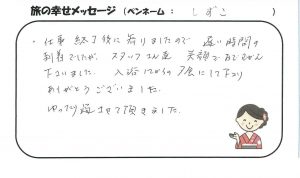 旅の幸せメッセージ (ペンネーム : しずこ )
・仕事終了後に寄りましたので 遅い時間の
到着でしたが、スタッフさん達 笑顔でおでむかえ
下さいました。 入浴してからの夕食にして下さり
ありがとうございました。
ゆったり過させて頂きました。